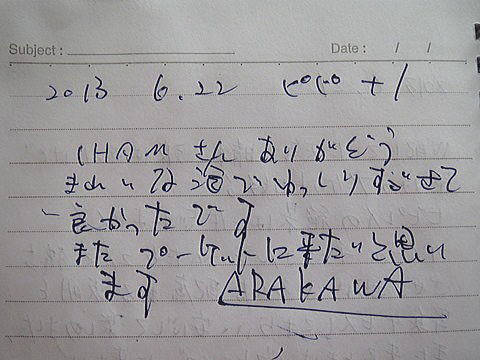 Subject : Date : / /
2013 6.22
CHAM さん ありがとう
きれいな海でゆっくりすごせて
良かったです
また プーケットに来たいと思い
ます ARAKAWA